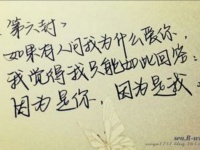 《第六封》
如果有人问我为什么爱你，
我觉得我只能如此回答：
因为是你，因为是我。